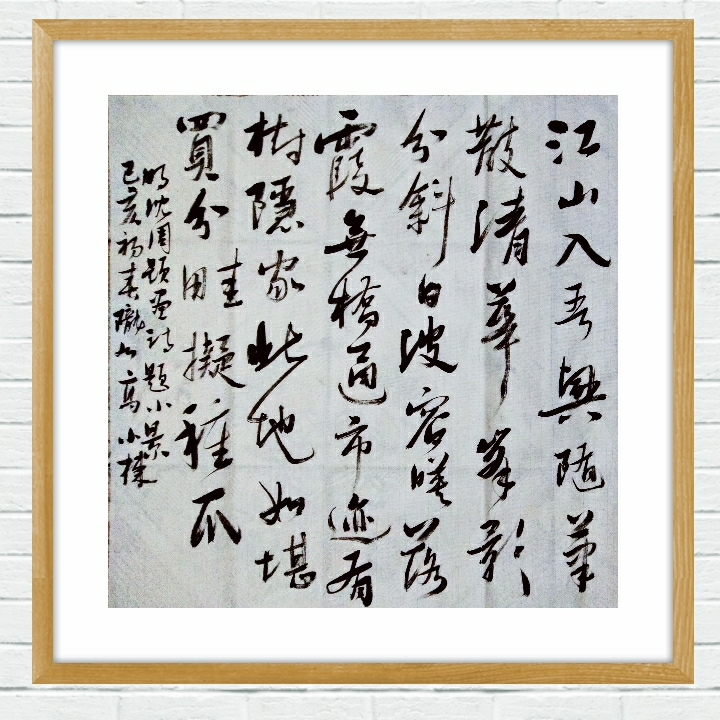 江山入吾興隨筆
散清華峯影
分斜日波容暎落
霞無橋通市迹有
樹隱家此地如堪
買分畦擬種瓜
明沈周題畫詩題小景
己亥初春隴高小